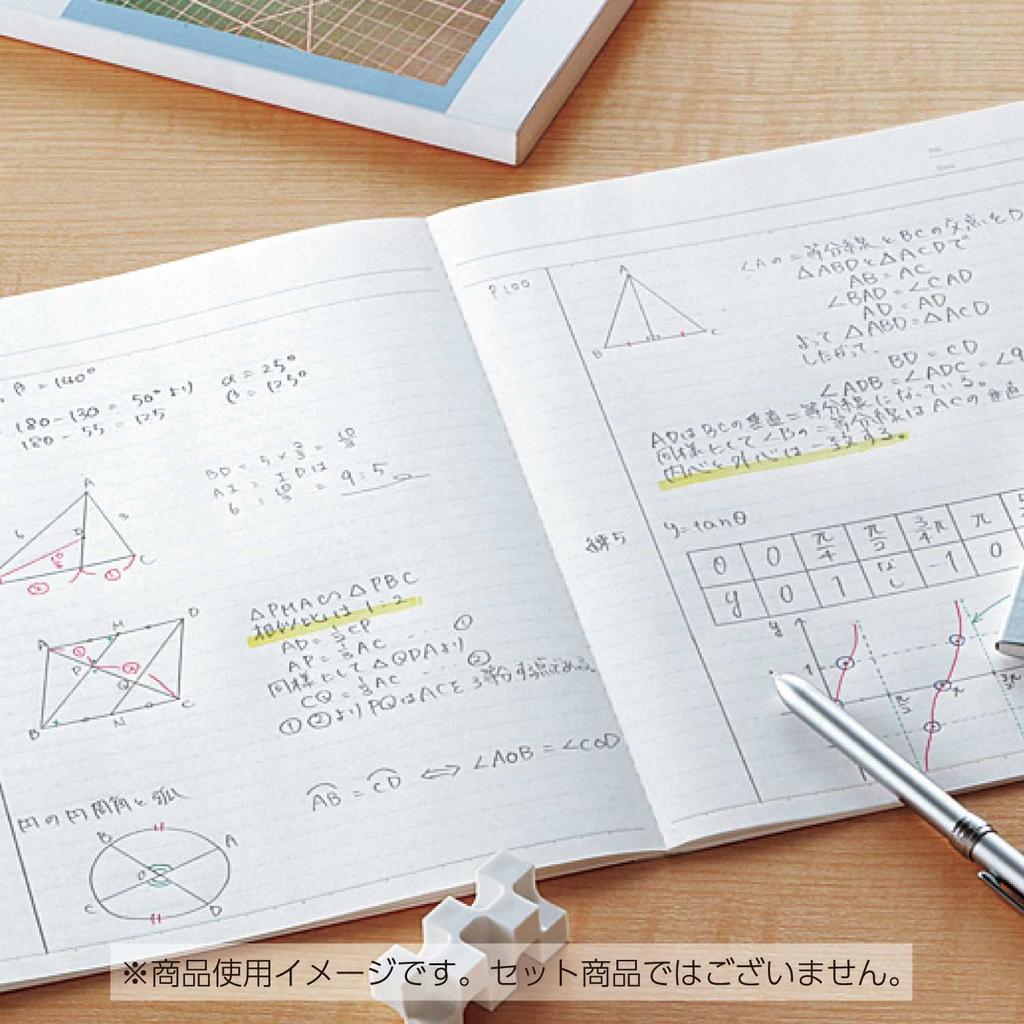 β = 140°
180 - 130 = 50° より
180 - 55 = 125
α = 25°
β = 125°
A
6
3
C
AI = ID は
= 9 : 5
A
M
D
P
Q
B
N
C
△PMA∽△PBC
相似比は 1:2
AD = ½CP
AP = ⅓AC ... ①
同様にして △QDAより
CQ = ⅓AC ... ②
①②よりPQはACを3等分する点である。
円の円周角と弧
B
A
O
C
D
AB = CD ⟺ ∠AOB = ∠COD
P100
A
B
C
∠Aの二等分線とBCの交点をD
△ABDと△ACDで
AB = AC
∠BAD = ∠CAD
AD = AD
よって △ABD = △ACD
したがって、
BD = CD
∠ADB = ∠ADC = ∠9
ADはBCの垂直二等分線になっている。
同様にして∠Bの二等分線はACの垂直
内心と外心は一致する。
y = tanθ
θ 0 π/4 π/2 3/4π π
y 0 1 なし -1 0
y
1
π/2
π
3π/2
※商品使用イメージです。セット商品ではございません。